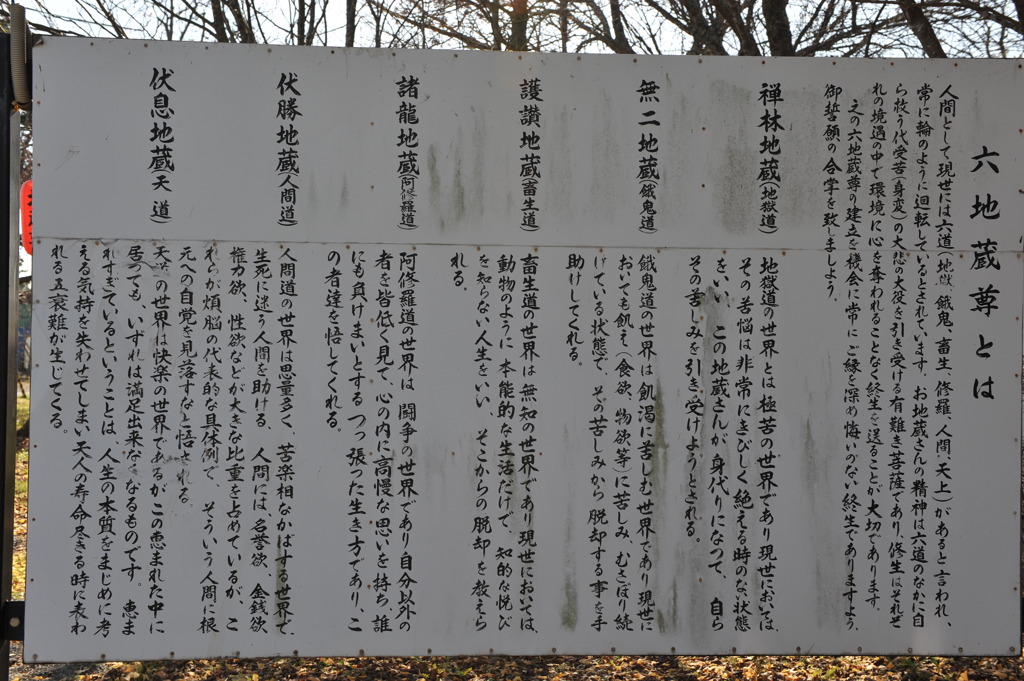 六地蔵尊とは
人間として現世には六道(地獄、餓鬼、畜生、修羅、人間、天上)があると言われ、
常に輪のように廻転しているとされています。お地蔵さんの精神は六道のなかに自
ら救う代受苦(身変)の大悲の大役を引き受ける有難き菩薩であり、修生はそれぞ
れの境遇の中で環境に心を奪われることなく終生を送ることが大切であります。
この六地蔵尊の建立を機会に常に ご縁を深め悔いのない終生でありますよう、
御誓願の合掌を致しましょう。
禅林地蔵(地獄道)
地獄道の世界とは極苦の世界であり現世においては、
その苦悩は非常にきびしく絶える時のな、状態
をいい、この地蔵さんが身代りになって、自ら
その苦しみを引き受けようとされる。
無二地蔵(餓鬼道)
餓鬼道の世界は飢渇に苦しむ世界であり現世に
おいても飢え(食欲、物欲等)に苦しみ、むさぼり続
けている状態で、その苦しみから脱却する事を手
助けしてくれる。
護讃地蔵(畜生道)
畜生道の世界は無知の世界であり現世においては、
動物のように本能的な生活だけで、知的な悦び
を知らない人生をいい、そこからの脱却を教えら
れる。
諸龍地蔵(阿修羅道)
阿修羅道の世界は、闘争の世界であり自分以外の
者を皆低く見て、心の内に高慢な思いを持ち、誰
にも負けまいとするつっ張った生き方であり、こ
の者達を悟してくれる。
伏勝地蔵(人間道)
人間道の世界は思量多く、苦楽相なかばする世界で、
生死に迷う人間を助ける、人間には、名誉欲、金銭欲
権力欲、性欲などが大きな比重を占めているが、こ
れらが煩脳の代表的な具体例で、そういう人間に根
元への自覚を見落すなと悟される。
伏息地蔵(天道)
天道の世界は快楽の世界であるがこの恵まれた中に
居っても、いずれは満足出来なくなるものです。恵ま
れすぎているということは、人生の本質をまじめに考
える気持を失わせてしま、天人の寿命尽きる時に表わ
れる五衰難が生じてくる。